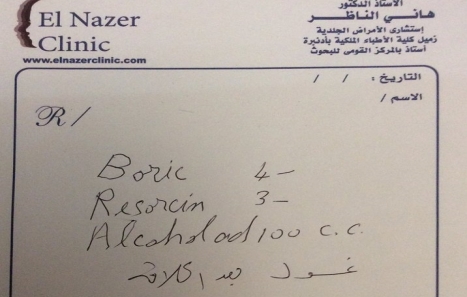 El Nazer
Clinic
www.elnazerclinic.com
الأستاذ الدكتور
هاني الناظر
إستشارى الأمراض الجلدية
زميل كلية الأطباء الملكية بأدنبرة
أستاذ بالمركز القومى للبحوث
التاريخ : / /
الاسم /
R/
Boric 4-
Resorcin 3-
Alcohol ad 100 c.c.
غسول بعد الحلاقة